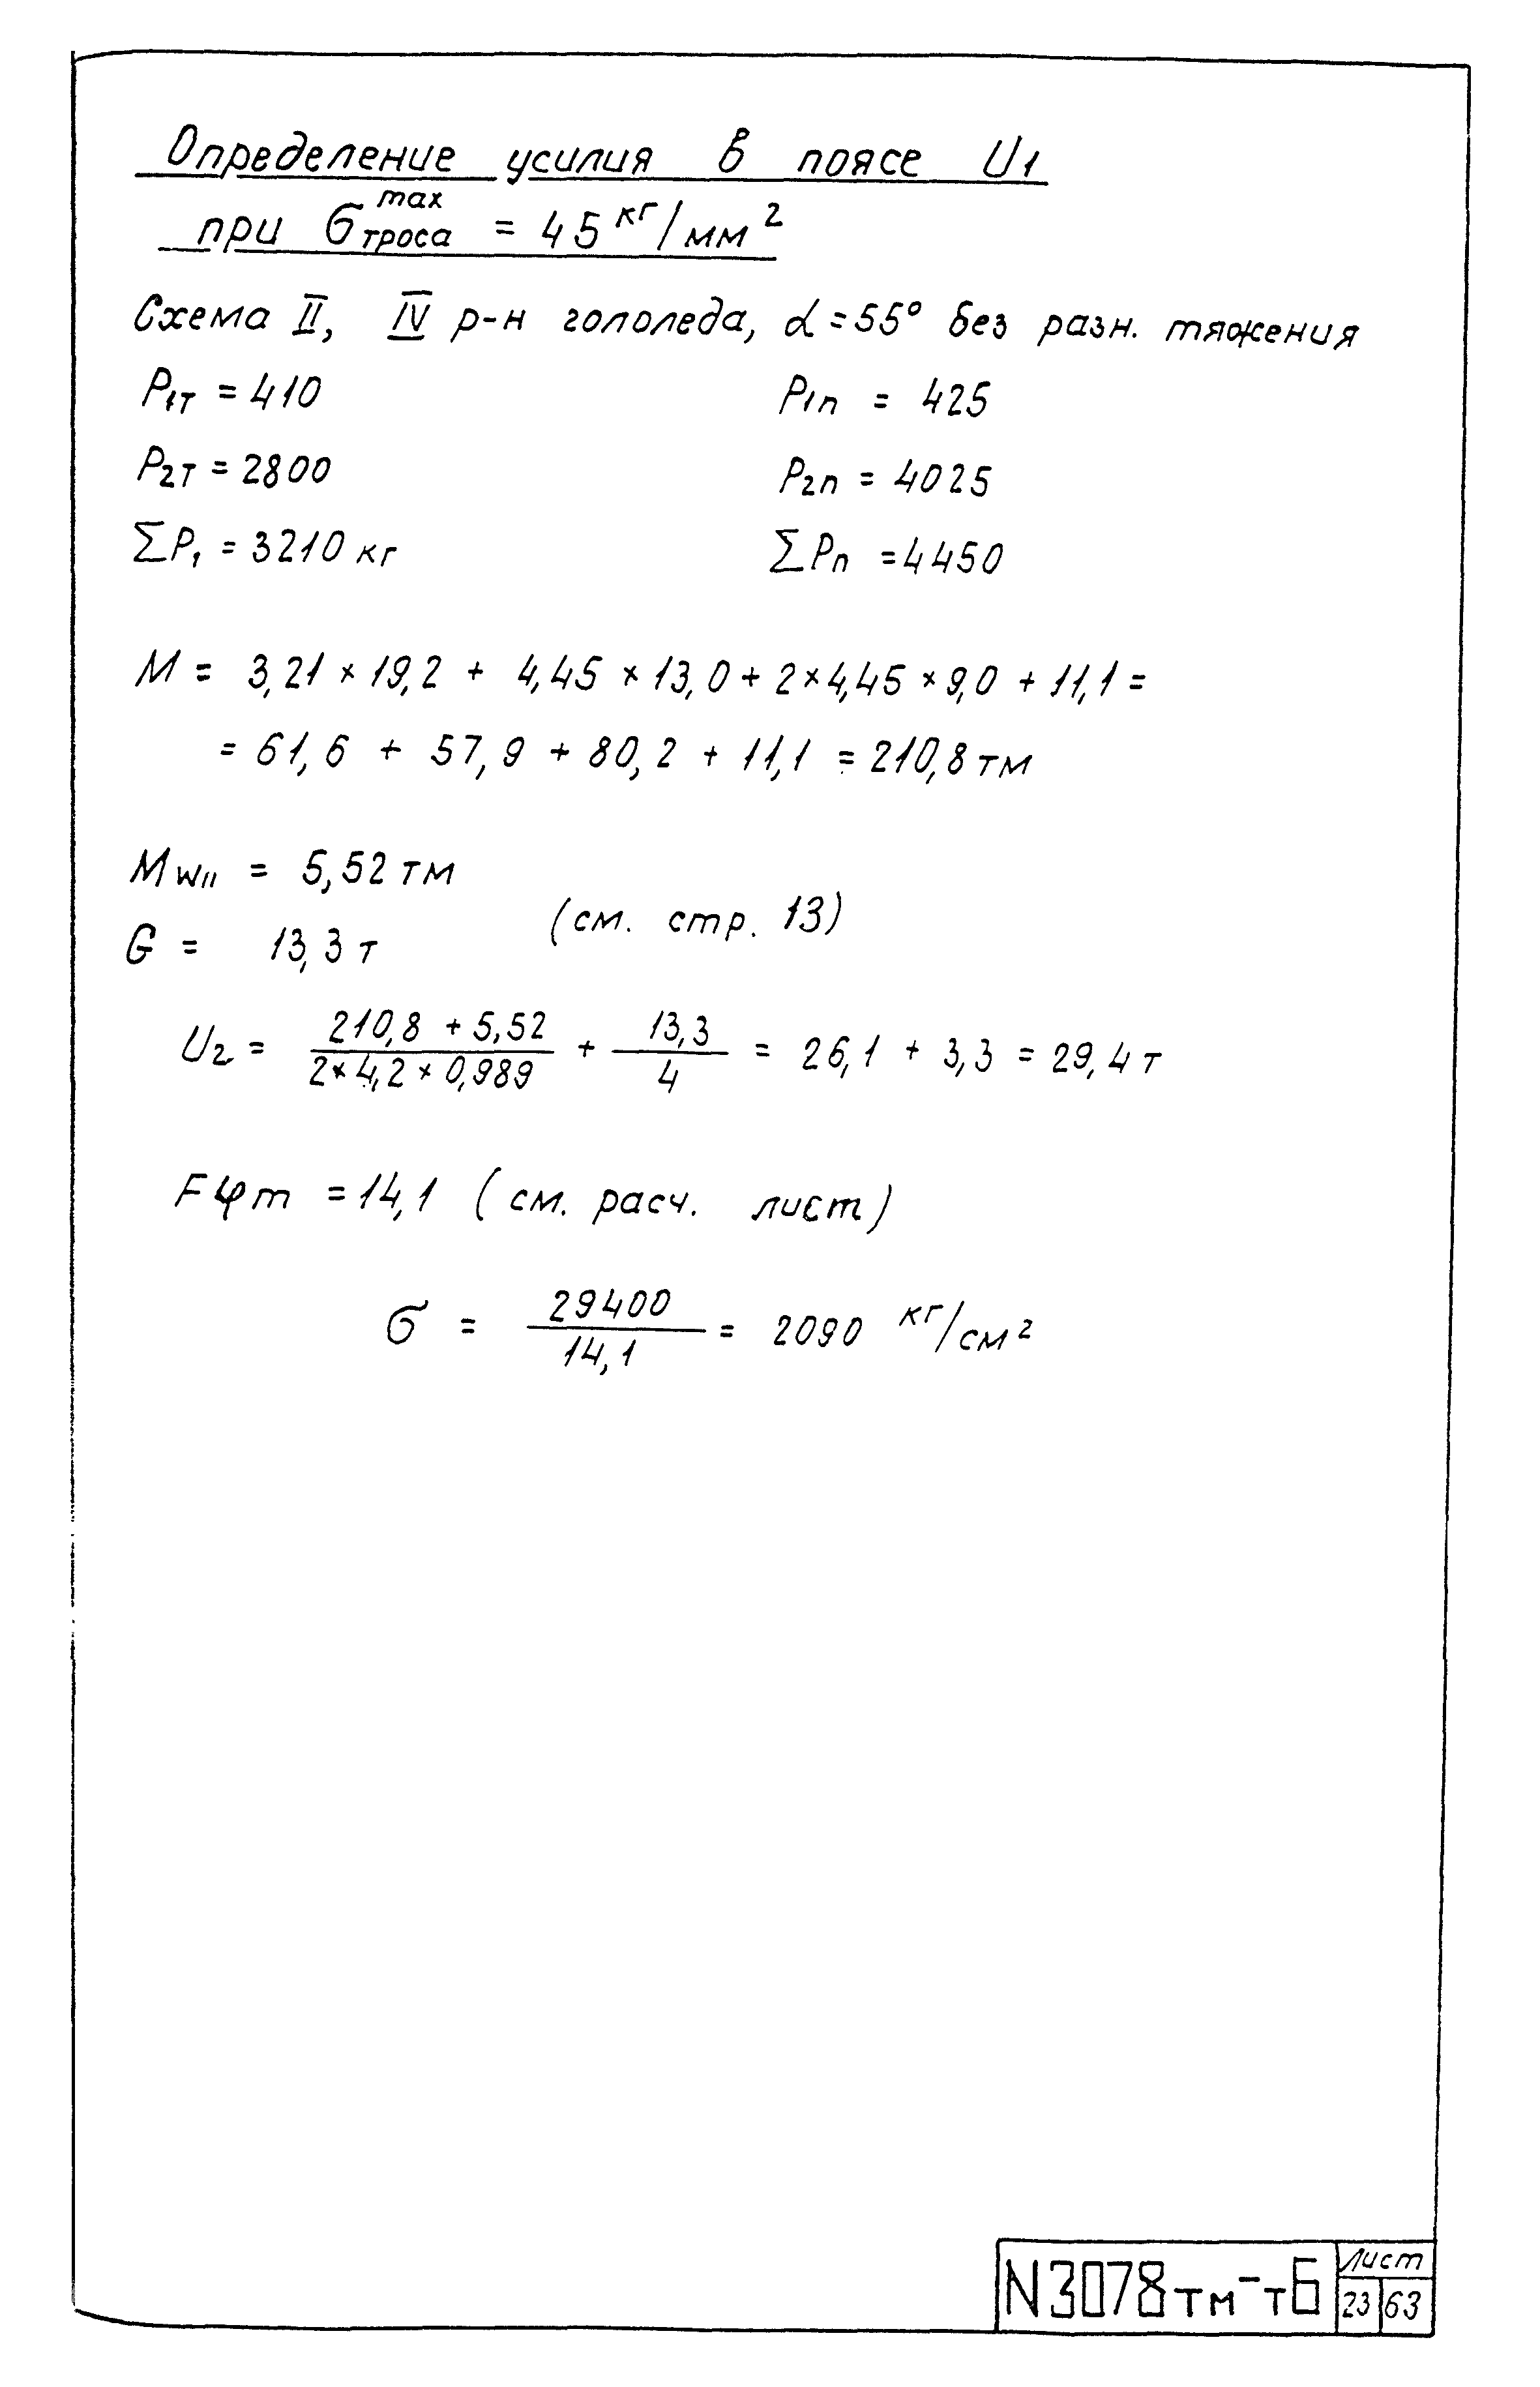 Определение усилия в поясе U1
при σ троса max = 45 кг/мм²
Схема II, IV р-н гололеда, α=55° без разн. тяжения
P1т = 410 P1п = 425
P2т = 2800 P2п = 4025
ΣP1 = 3210 кг ΣPп = 4450
M = 3,21 × 19,2 + 4,45 × 13,0 + 2 × 4,45 × 9,0 + 11,1 =
= 61,6 + 57,9 + 80,2 + 11,1 = 210,8 тм
MwII = 5,52 тм
(см. стр. 13)
G = 13,3 т
U2 = (210,8 + 5,52)/(2 × 4,2 × 0,989) + 13,3/4 = 26,1 + 3,3 = 29,4 т
Fφm = 14,1 (см. расч. лист)
σ = 29400/14,1 = 2090 кг/см²
N3078тм-тБ
Лист
23 63